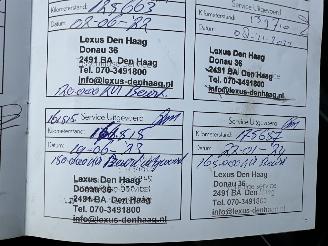 Kilometerstand: 128663
Datum: 02-06-'22
Lexus Den Haag
Donau 36
2491 BA Den Haag
Tel. 070-3491800
info@lexus-denhaag.nl
120.000 KM Beurt
Service Uitgevoerd
Kilometerstand:
Datum:
Lexus Den Haag
Donau 36
2491 BA Den Haag
Tel. 070-3491800
info@lexus-denhaag.nl
161515 Service Uitgevoerd
Kilometerstand: 161515
Datum: 19-06-'23
150.000 KM Beurt uitgevoerd
Lexus Den Haag
Donau 36
2491 BA Den Haag
Tel. 070-3491800
info@lexus-denhaag.nl
Service Uitgevoerd
Kilometerstand: 175657
Datum: 22-01-'24
165.000 KM Beurt
Lexus Den Haag
Donau 36
2491 BA Den Haag
Tel. 070-3491800
info@lexus-denhaag.nl